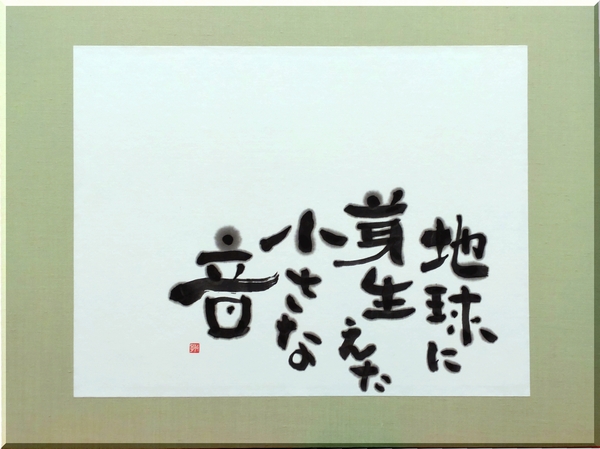 地球に
芽生えた
小さな
音